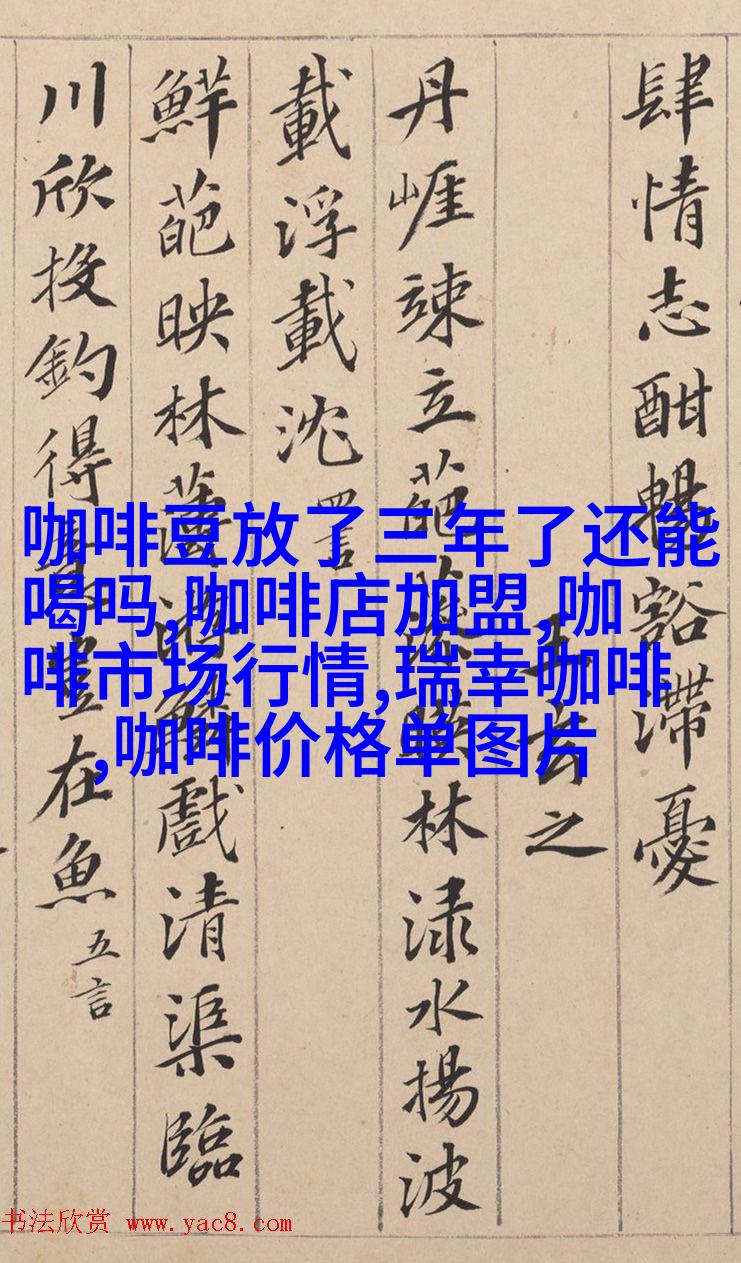 肆情志酣暢豁滯憂
王玄之
丹崕竦立葩藻映林渌水揚波
載浮載沈 四言
鮮葩映林薄游鱗戲清渠臨
川欣投釣得意豈在魚 五言
咖啡豆放了三年了还能
喝吗,咖啡店加盟,咖
啡市场行情,瑞幸咖啡
,咖啡价格单图片
书法欣赏 www.yac8.com